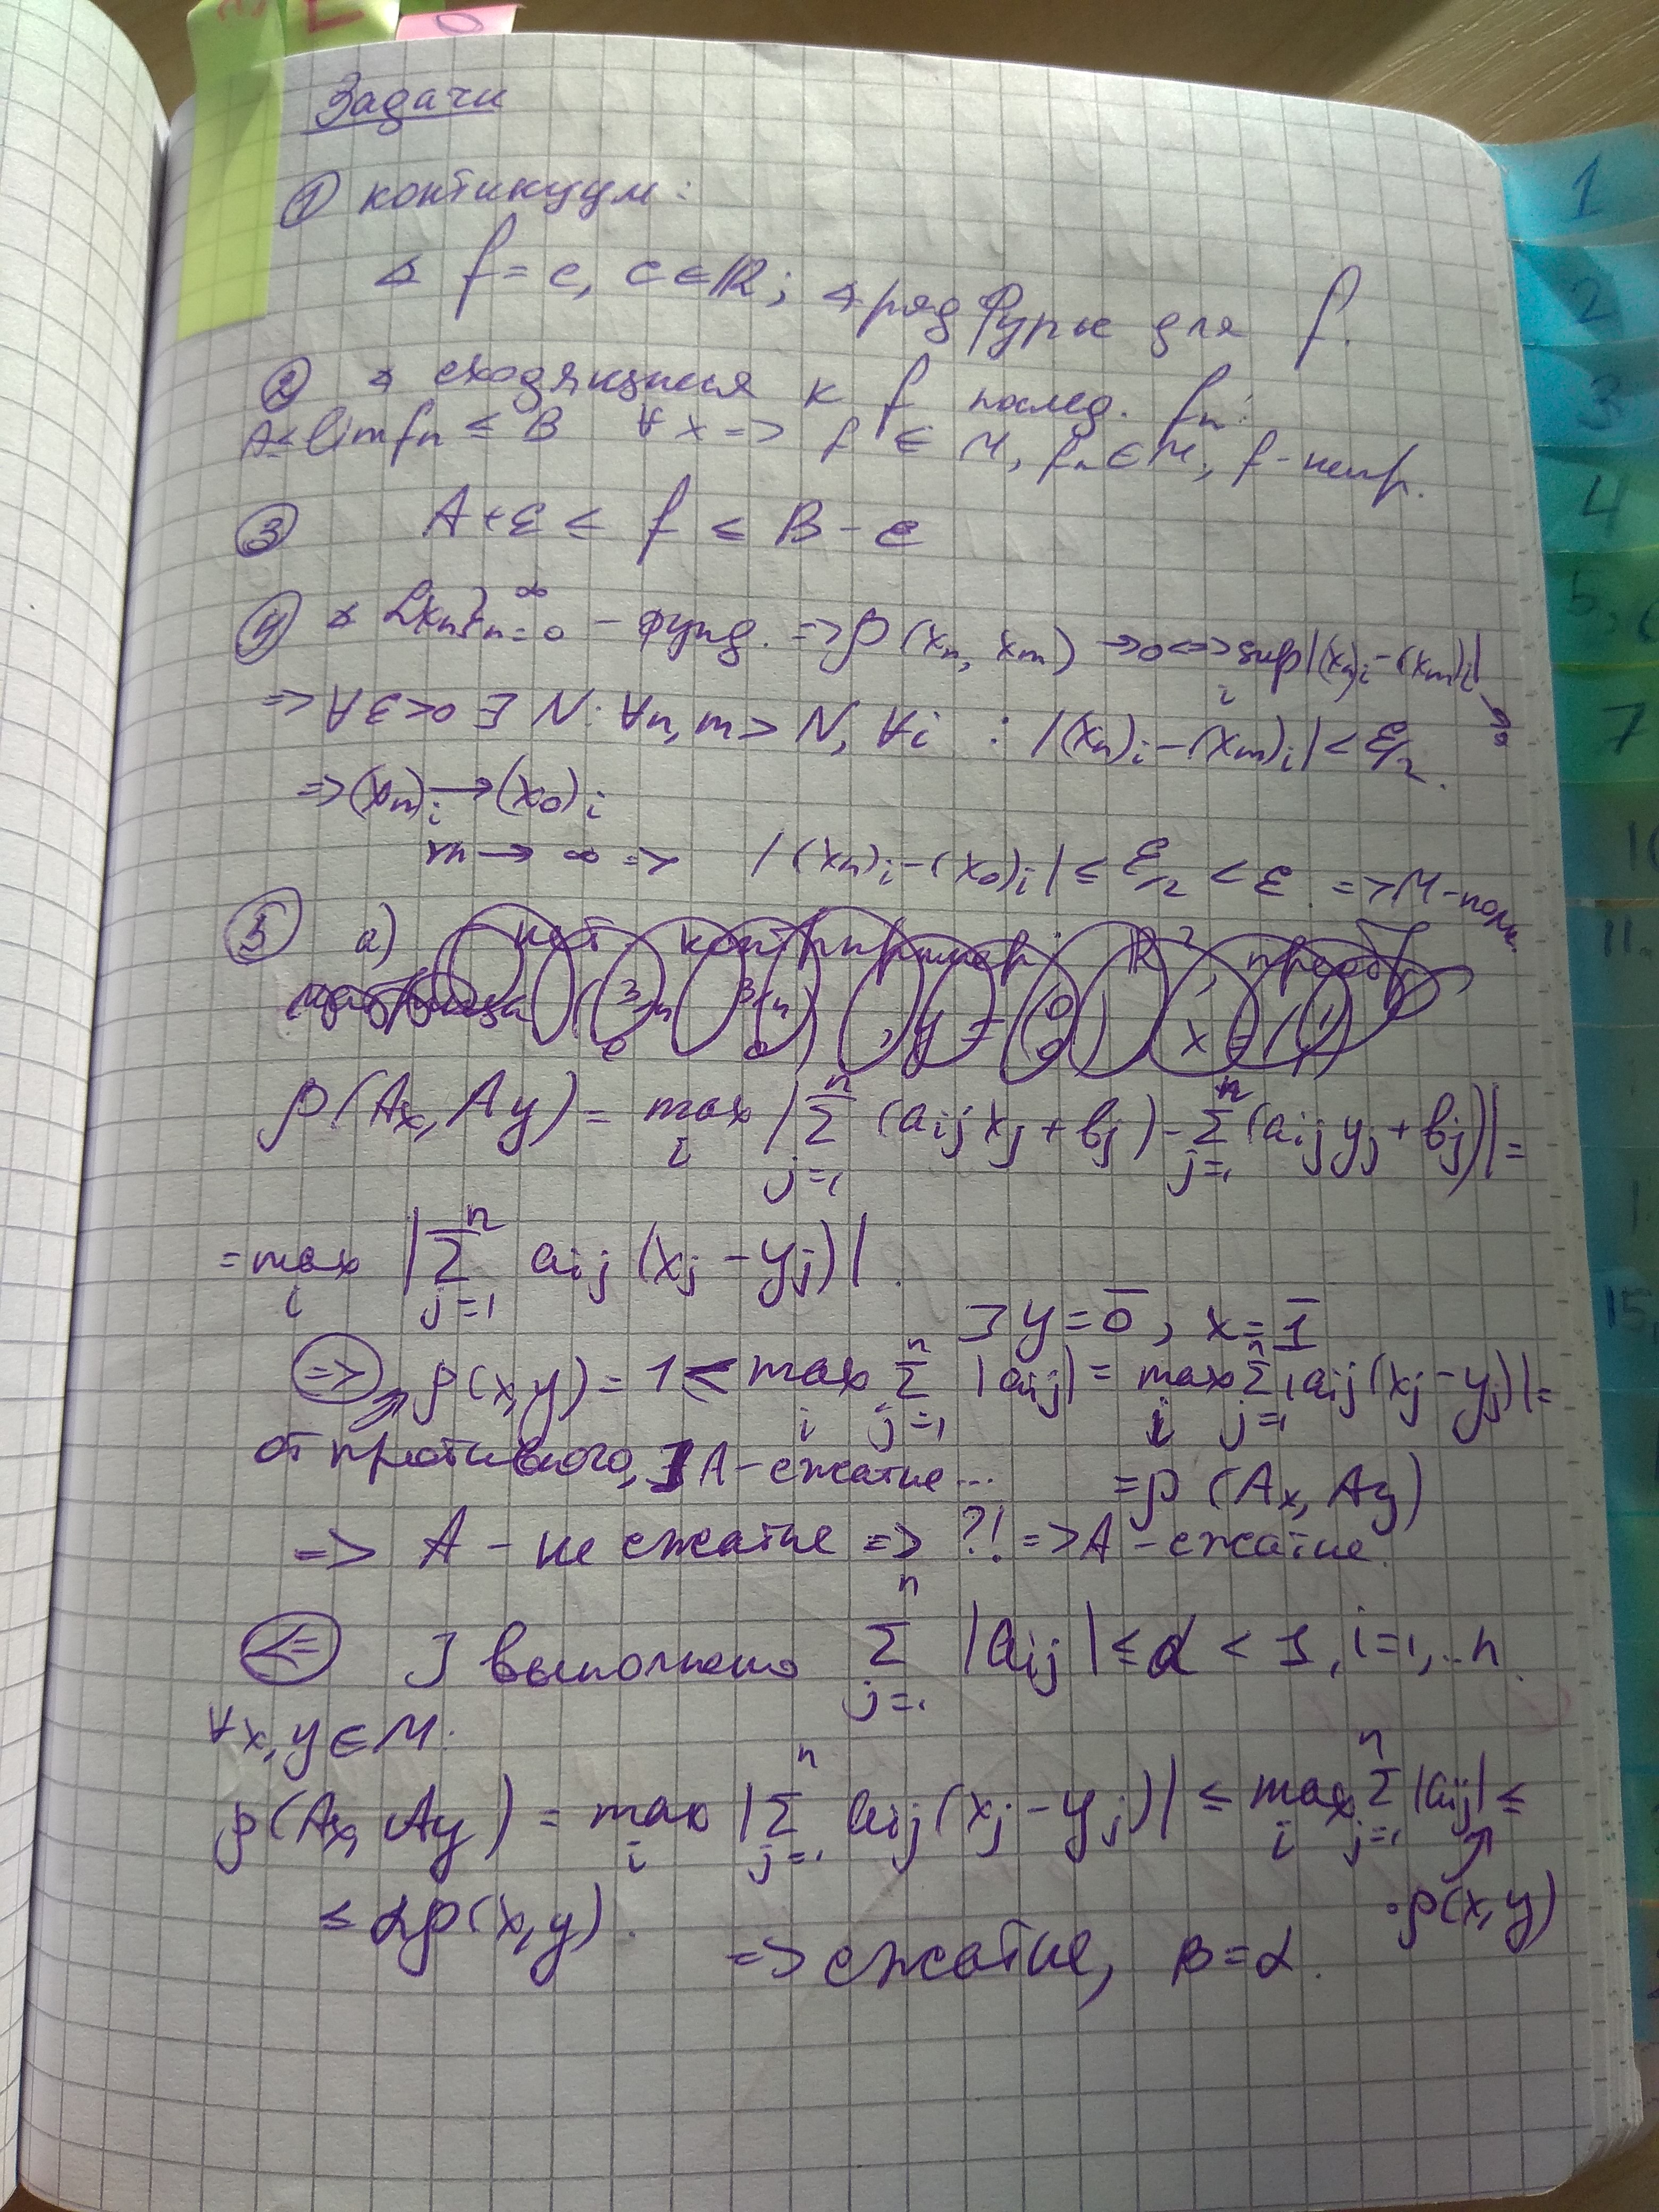 Задачи
① континуум:
∢ f = c, c ∈ ℝ; ∢ ряд Фурье для f.
② ∢ сходящиися к f послед. fₙ:
A ≤ lim fₙ ≤ B ∀x => f ∈ M, fₙ ∈ M, f - непр.
③ A + ε ≤ f ≤ B - ε
④ ∢ {xₙ}ₙ₌₀^∞ - фунд. => ρ(xₙ, xₘ) → 0 <=> sup_i |(xₙ)ᵢ - (xₘ)ᵢ| → 0
=> ∀ε>0 ∃ N: ∀n, m > N, ∀i : |(xₙ)ᵢ - (xₘ)ᵢ| < ε/2.
=> (xₙ)ᵢ → (x₀)ᵢ
m → ∞ => |(xₙ)ᵢ - (x₀)ᵢ| ≤ ε/2 < ε => M - полн.
⑤ а)
ρ(Ax, Ay) = max_i |Σ_{j=1}^n (aᵢⱼxⱼ + bⱼ) - Σ_{j=1}^n (aᵢⱼyⱼ + bⱼ)| =
= max_i |Σ_{j=1}^n aᵢⱼ(xⱼ - yⱼ)|.
⊐ y = 0̄, x = 1̄
(=>) ρ(x, y) = 1 ≤ max_i Σ_{j=1}^n |aᵢⱼ| = max_i Σ_{j=1}^n |aᵢⱼ(xⱼ - yⱼ)| =
от противного, ⊐ A - сжатие... = ρ(Ax, Ay)
=> A - не сжатие => ?! => A - сжатие.
(<=) ⊐ выполнено Σ_{j=1}^n |aᵢⱼ| ≤ α < 1, i = 1,..n.
∀x, y ∈ M:
ρ(Ax, Ay) = max_i |Σ_{j=1}^n aᵢⱼ(xⱼ - yⱼ)| ≤ max_i Σ_{j=1}^n |aᵢⱼ| ≤
·ρ(x, y)
≤ αρ(x, y).
=> сжатие, β = α.
1
2
3
4
7